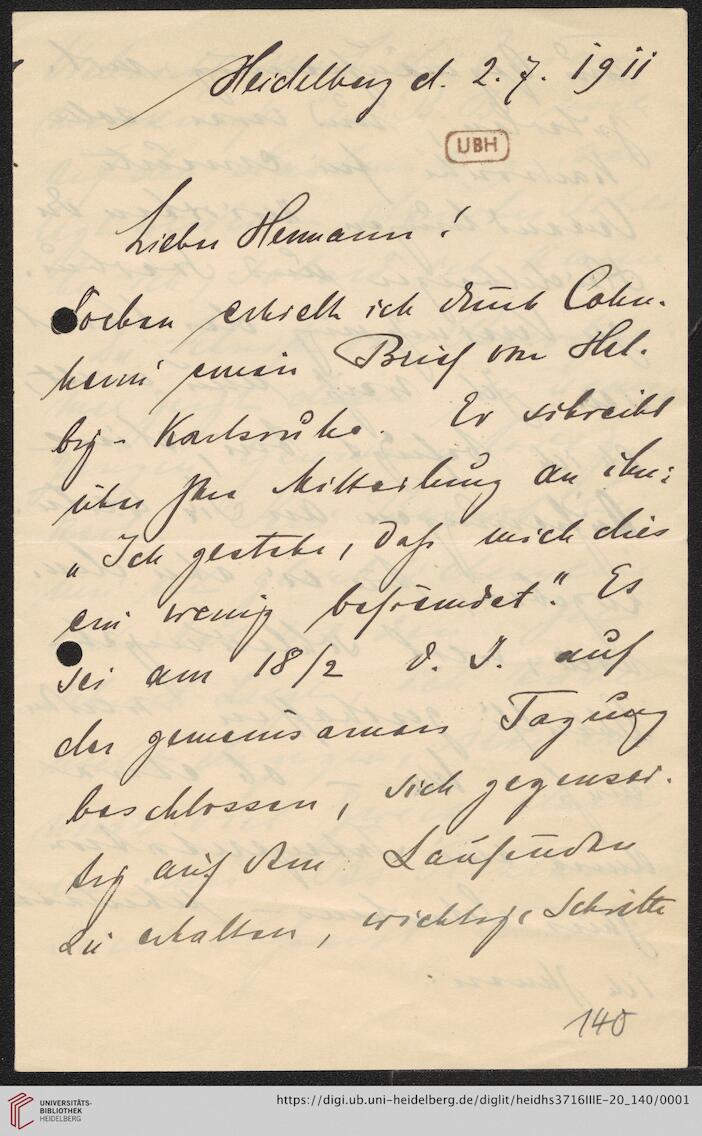 Heidelberg d. 2. 7. 1911
UBH
Lieber Hermann!
Soeben erhielt ich durch Cohn-
heim einen Brief von Hel-
big-Karlsruhe. Er schreibt
über Ihre Mitteilung an ihn:
„Ich gestehe, daß mich dies
ein wenig befremdet." Es
sei am 18/2 d. J. auf
der gemeinsamen Tagung
beschlossen, sich gegensei-
tig auf dem Laufenden
zu erhalten, wichtige Schritte
140
UNIVERSITÄTS-
BIBLIOTHEK
HEIDELBERG
https://digi.ub.uni-heidelberg.de/diglit/heidhs3716IIIE-20_140/0001